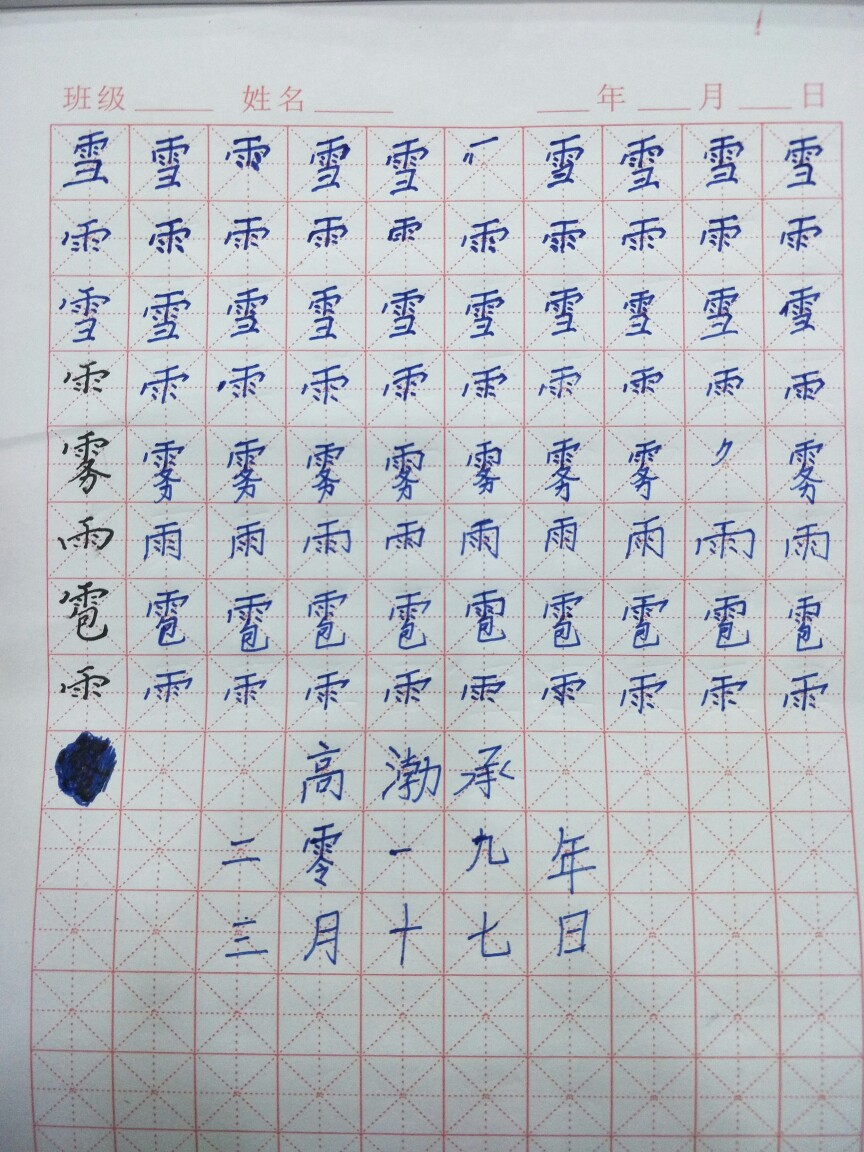 班级 姓名 年 月 日
雪 雪 雨 雪 雪 雪 雪 雪 雪
雨 雨 雨 雨 雨 雨 雨 雨 雨 雨
雪 雪 雪 雪 雪 雪 雪 雪 雪 雪
雨 雨 雨 雨 雨 雨 雨 雨 雨 雨
雾 雾 雾 雾 雾 雾 雾 雾 雾
雨 雨 雨 雨 雨 雨 雨 雨 雨 雨
雹 雹 雹 雹 雹 雹 雹 雹 雹 雹
雨 雨 雨 雨 雨 雨 雨 雨 雨 雨
高 渤 承
二 零 一 九 年
三 月 十 七 日